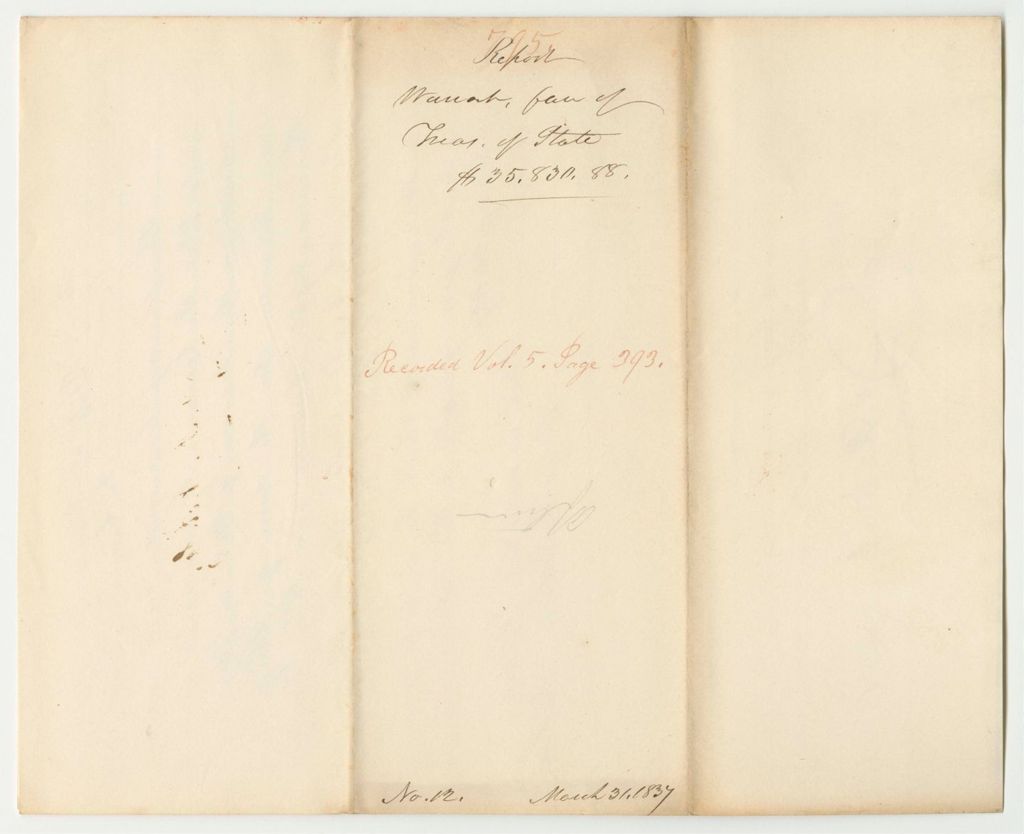 705
Report
Warrant, fav of
Treas. of State
$35.830.88.
Recorded Vol. 5. Page 393.
No. 12. March 31. 1837